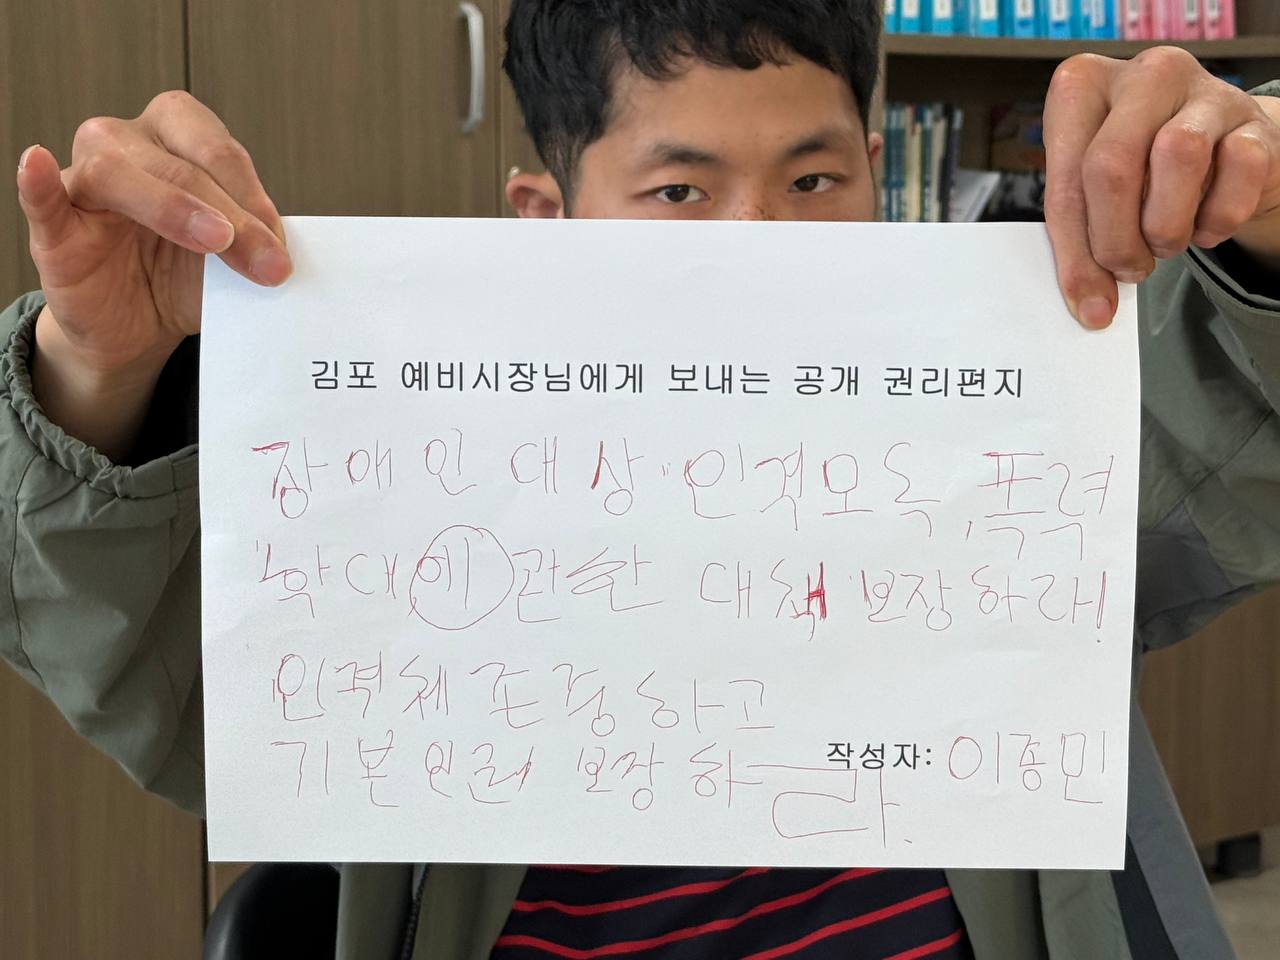 김포 예비시장님에게 보내는 공개 권리편지
장애인 대상 "인격모독, 폭력
학대에관한 대책 보장하라!
인격체 존중하고
기본인권 보장하라.
작성자: 이종민